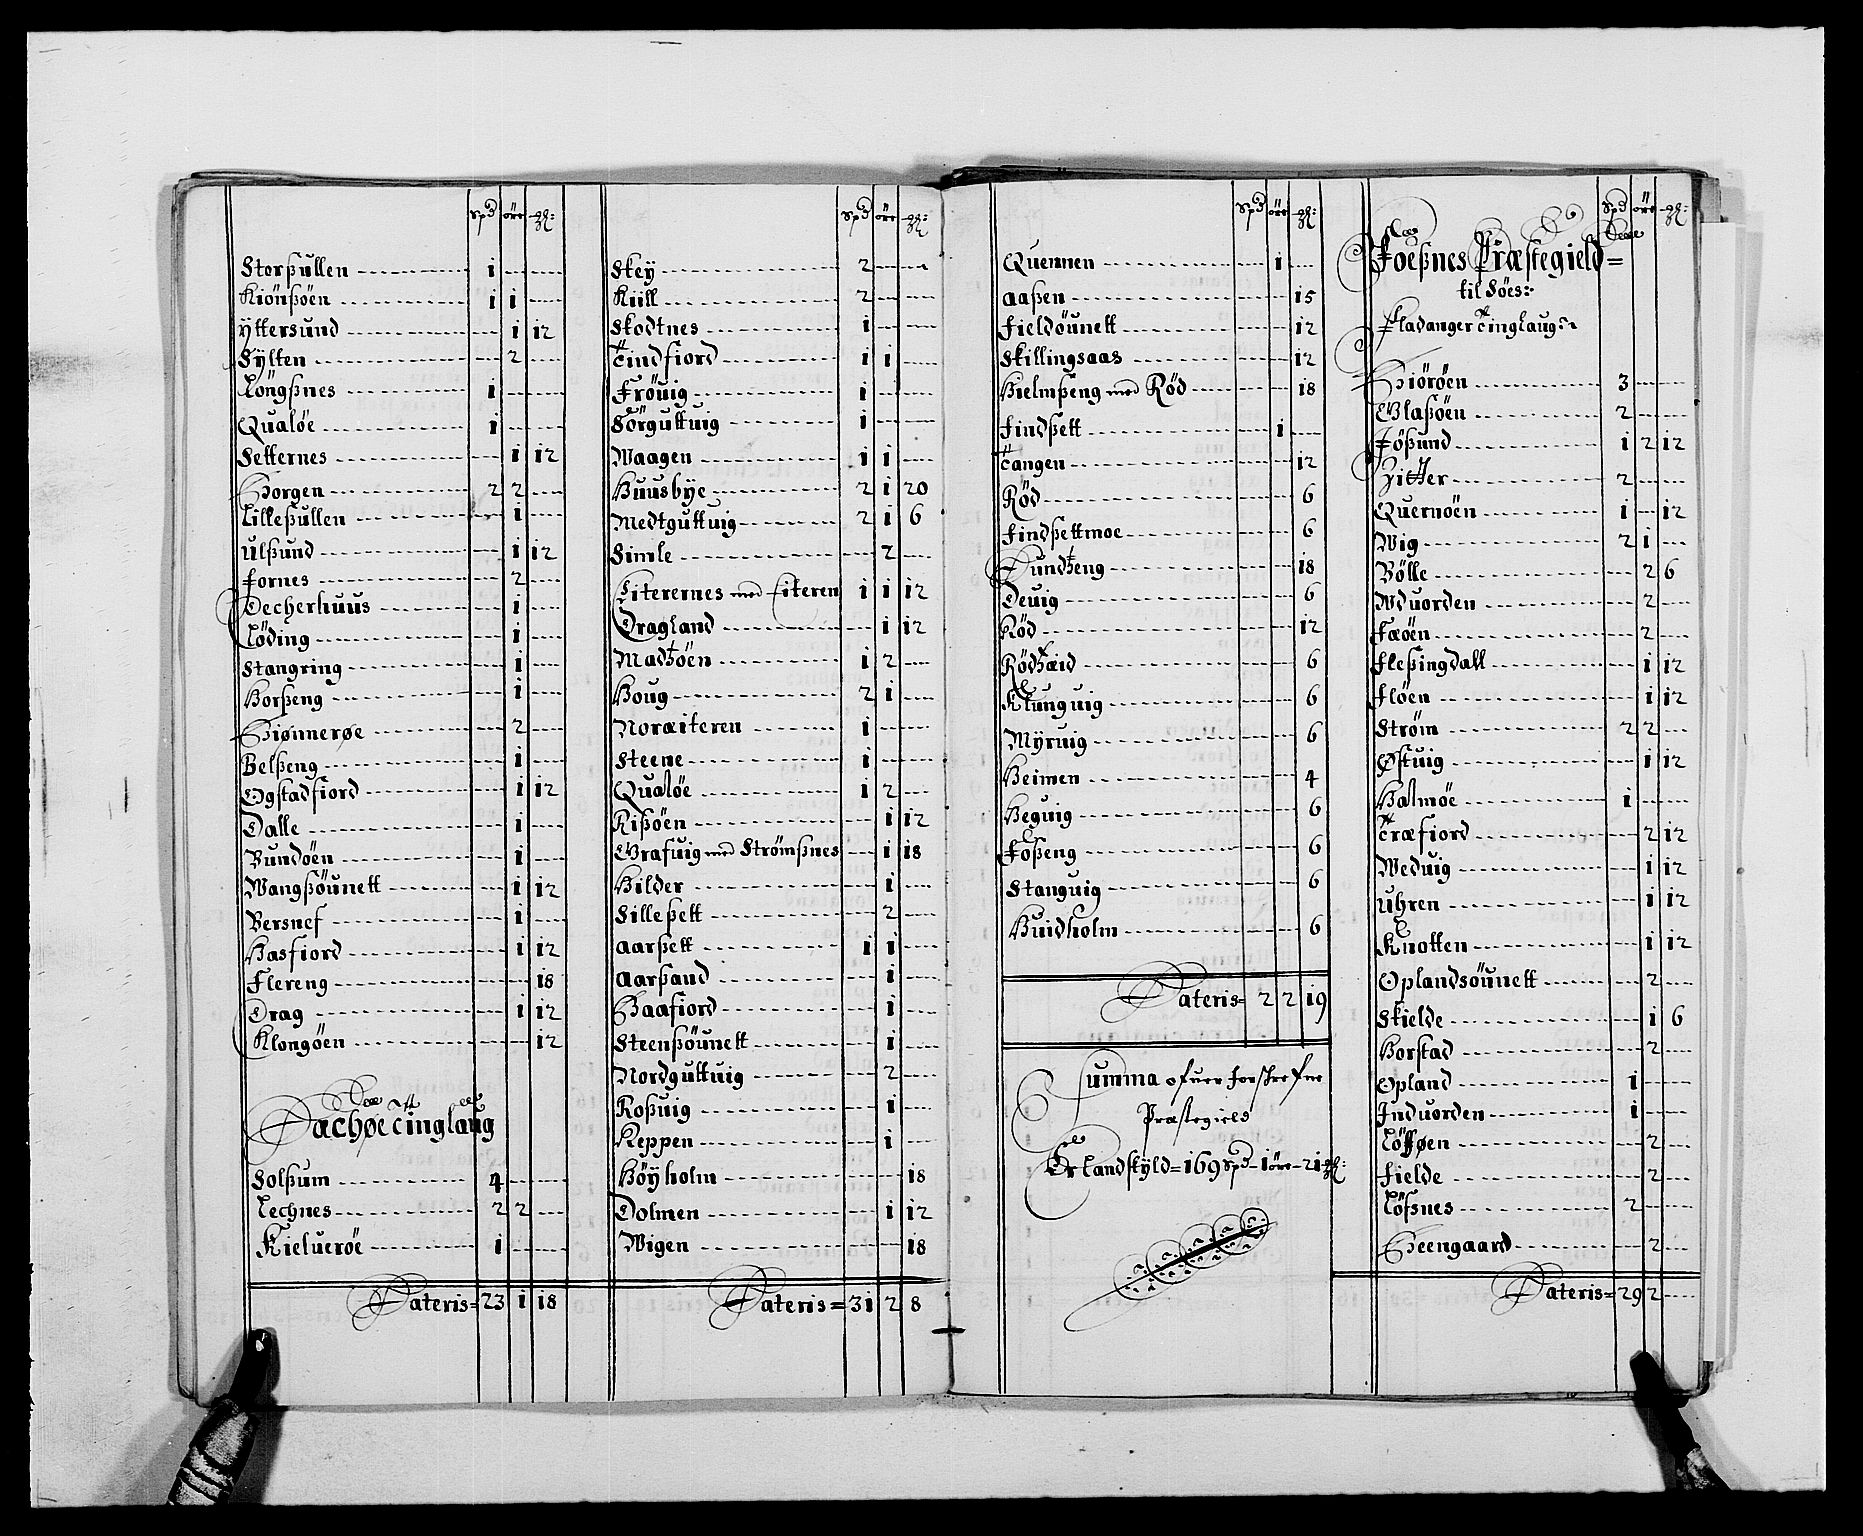 Spd öre gℓ:
Storßullen 1
Kiönßöen 1 1
Yttersund 1 12
Sylten 2
Longßnes 1
Qualöe 1
Setternes 1 12
Horgen 2 2
Lilleßullen 1
Ulßund 1 12
Fornes 2
Decherhuus 1
Löding 1
Stangring 1
Horßeng 1
Hiønnerøe 2
Belßeng 1
Ogstadfiord 1 12
Dalle 1
Bundöen 1
Wangßöunett 1 12
Bersnef 1
Hasfiord 1 12
Flereng 18
Drag 1 12
Klongöen 12
Dachøe Tinglaug
Solßum 4
Lechnes 2 2
Kieluerøe 1
Lateris= 23 1 18
Spd öre gℓ:
Skey 2
Kiill 2
Skodtnes 1
Tindfiord 1 1
Fröuig 1
Sörguttuig 1
Waagen 1 1
Huusbye 2 1 20
Medtguttuig 2 1 6
Simle 2
Eiterernes med Eiteren 1 1 12
Dragland 1 12
Madtzöen 1 2
Houg 2 1
Noræiteren 1
Steene 1
Qualöe 1 2
Rißöen 1 12
Grafuig med Strömßnes 1 18
Hilder 1
Silleßett 2
Aarßett 1 1
Aarßand 1
Haafiord 1
Steenßöunett 1
Nordguttuig 2
Roßuig 1
Keppen 1
Höyholm 18
Dolmen 1 12
Wigen 18
Lateris= 31 2 8
Spd öre gℓ:
Quennen 1
Aaßen 15
Fieldöunett 12
Skillingsaas 12
Hielmßeng med Röd 18
Findßett 1
Tangen 12
Röd 6
Findßettmoe 6
Sundtzeng 18
Deuig 6
Röd 12
Rödtzæid 6
Klunguig 6
Myruig 6
Heimen 4
Heguig 6
Foßeng 6
Stanguig 6
Huidholm 6
Lateris= 2 2 19
Summa ofuer forschrefne
Præstegield
Er Landskyld= 169 Spd- 1 öre- 21 gℓ:
Spd öre gℓ:
Foeßnes Præstegield=
til Söes:
Fladanger Tinglaug:
Hiöröen 3
Glaßöen 2
Jößund 1 2 12
Zitter 2
Quernöen 1 12
Wig 2 1
Bölle 2 6
Wduorden 2
Fæöen 2
Fleßingdall 1 12
Flöen 1 12
Ström 2 2
Østuig 1 12
Halmöe 1
Træfiord 2 12
Weduig 1 12
Uhren 1 12
Knotten 1 12
Oplandsöunett 2
Skielde 1 6
Horstad 2
Opland 1
Induorden 1
Löfføen 2
Fielde 2
Löfsnes 2
Heengaard 2
Lateris= 29 2